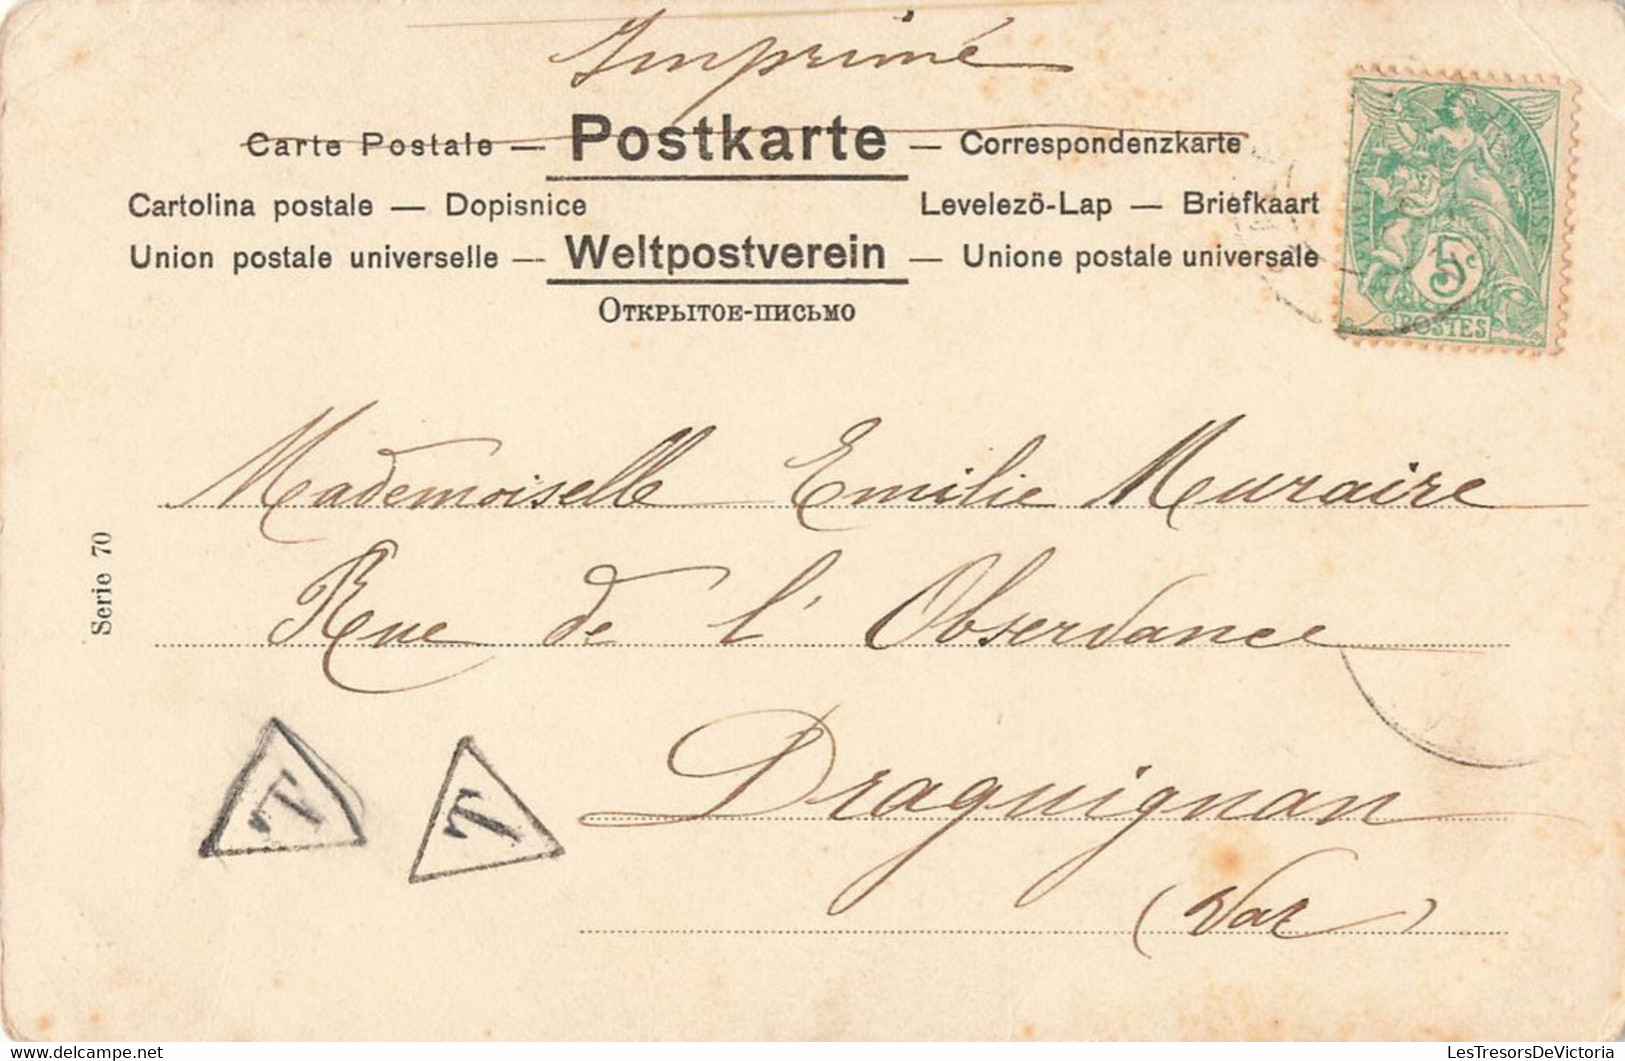 Imprimé
Carte Postale — Postkarte — Correspondenzkarte
Cartolina postale — Dopisnice Levelezö-Lap — Briefkaart
Union postale universelle — Weltpostverein — Unione postale universale
Открытое-письмо
5c
POSTES
Mademoiselle Emilie Muraire
Rue de l'Observance
Draguignan
(Var)
Serie 70
T
T
delcampe.net
LesTresorsDeVictoria